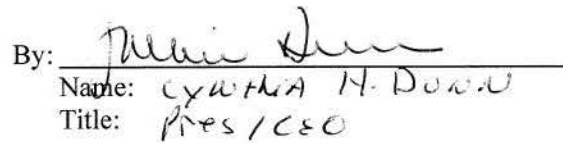 By:
Name: CYNTHIA H. DUNN
Title: Pres/CEO